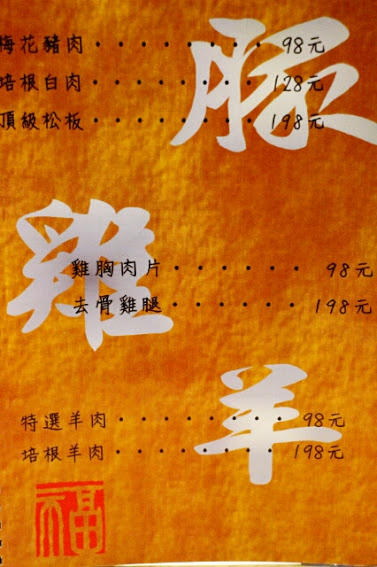 豚
梅花豬肉・・・・・・・・98元
培根白肉・・・・・・・・128元
頂級松板・・・・・・・・198元
雞
雞胸肉片・・・・・・98元
去骨雞腿・・・・・・198元
羊
特選羊肉・・・・・・・・98元
培根羊肉・・・・・・・・198元
福